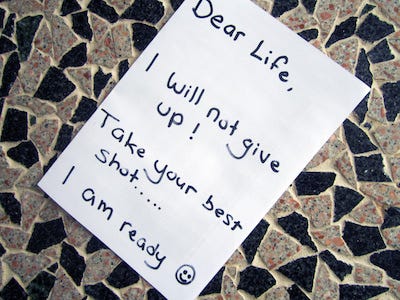 Dear Life,
I will not give
up !
Take your best
shot.....
I am ready ☺